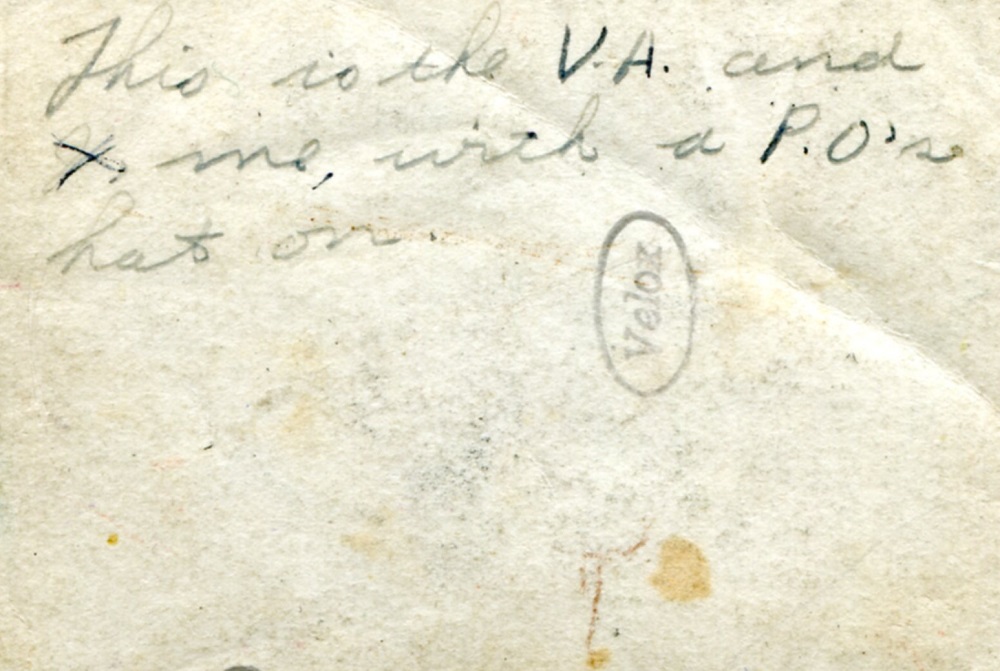 This is the V.A. and
X me, with a P.O's
hat on.
Velox